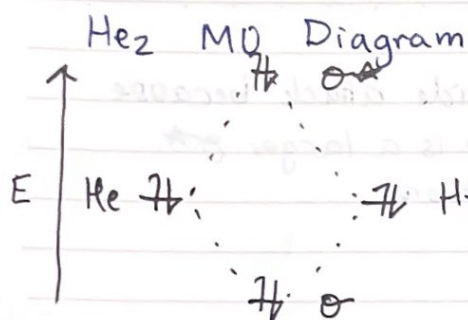 He2 MO Diagram
σ*
E He H
σ